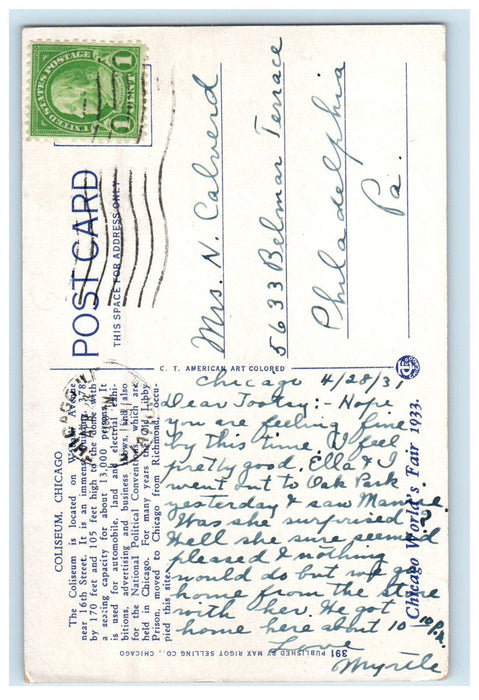 UNITED STATES POSTAGE
1 1
POST CARD
THIS SPACE FOR ADDRESS ONLY
Mrs. N. Calverd
5633 Belmar Terrace
Philadelphia
Pa.
C. T. AMERICAN ART COLORED
COLISEUM, CHICAGO
The Coliseum is located on Wabash Avenue
near 16th Street. It is an immense building 378
by 170 feet and 105 feet high to the dome with
a seating capacity for about 13,000 persons. It
is used for automobile, land and electrial exhi-
bitions, advertising and business shows, and also
for the National Political Conventions which are
held in Chicago. For many years the old Libby
Prison, moved to Chicago from Richmond, occu-
pied this site.
CHICAGO
Chicago 4/28/31
Dear Tootsy:- Hope
you are feeling fine
by this time. I feel
pretty good. Ella & I
went out to Oak Park
yesterday & saw Mamie.
Was she surprised?
Well she sure seemed
pleased & nothing
would do but we go
home from the store
with her. We got
home here about 10 P.M.
Love
Myrtle
Chicago World's Fair 1933.
391 PUBLISHED BY MAX RIGOT SELLING CO., CHICAGO